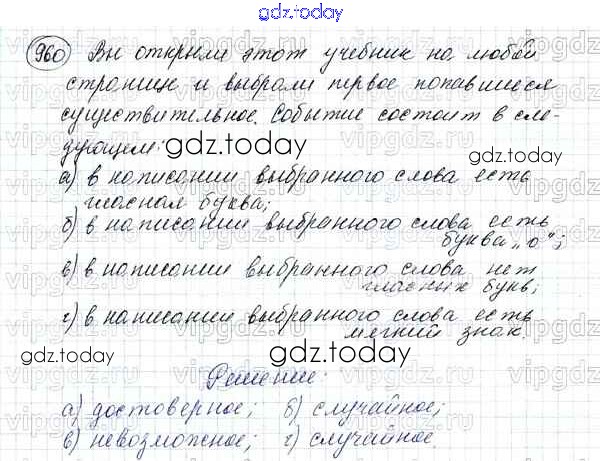 gdz.today
960 Вы открыли этот учебник на любой
странице и выбрали первое попавшиеся
существительное. Событие состоит в сле-
дующем:
gdz.today
gdz.today
а) в написании выбранного слова есть
гласная буква;
б) в написании выбранного слова есть
буква „о";
в) в написании выбранного слова нет
гласных букв;
г) в написании выбранного слова есть
мягкий знак.
gdz.today
gdz.today
Решение:
а) достоверное; б) случайное;
в) невозможное; г) случайное.
gdz.today
gdz.today